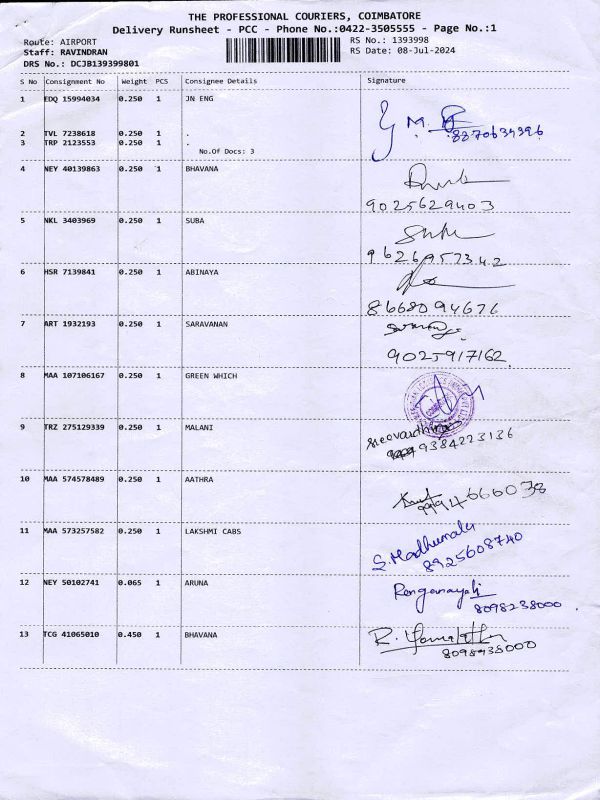 THE PROFESSIONAL COURIERS, COIMBATORE
Delivery Runsheet - PCC - Phone No.:0422-3505555 - Page No.:1
Route: AIRPORT RS No.: 1393998
Staff: RAVINDRAN RS Date: 08-Jul-2024
DRS No.: DCJB139399801
S No Consignment No Weight PCS Consignee Details Signature
1 EDQ 15994034 0.250 1 JN ENG
2 TVL 7238618 0.250 1 .
3 TRP 2123553 0.250 1 .
No.Of Docs: 3
4 NEY 40139863 0.250 1 BHAVANA
9025629403
5 NKL 3403969 0.250 1 SUBA
Suba
9626957342
6 HSR 7139841 0.250 1 ABINAYA
8668094676
7 ART 1932193 0.250 1 SARAVANAN
9025917162
8 MAA 107106167 0.250 1 GREEN WHICH
9 TRZ 275129339 0.250 1 MALANI
9384223136
10 MAA 574578489 0.250 1 AATHRA
11 MAA 573257582 0.250 1 LAKSHMI CABS
S. Madhumala
8925608740
12 NEY 50102741 0.065 1 ARUNA
8098238000
13 TCG 41065010 0.450 1 BHAVANA